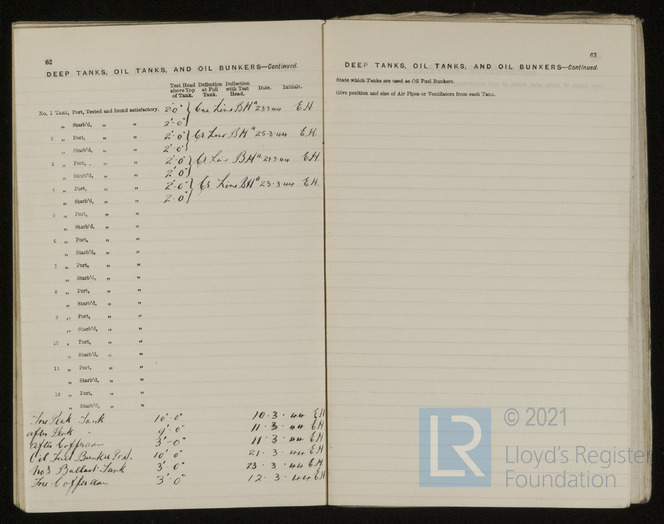 62
DEEP TANKS, OIL TANKS, AND OIL BUNKERS—Continued.
Test Head above Top of Tank. Deflection at Full Tank. Deflection with Test Head. Date. Initials.
No. 1 Tank, Port, Tested and found satisfactory. 2'-0" Line BHd 23.3.44 E.H.
„ Starb'd, „ „ 2'-0"
2 „ Port, „ „ 2'-0" Line BHd 25.3.44 E.H.
„ Starb'd, „ „ 2'-0"
3 „ Port, „ „ 2'-0" Line BHd 21.3.44 E.H.
„ Starb'd, „ „ 2'-0"
4 „ Port, „ „ 2'-0" Line BHd 23.3.44 E.H.
„ Starb'd, „ „ 2'-0"
5 „ Port, „ „
„ Starb'd, „ „
6 „ Port, „ „
„ Starb'd, „ „
7 „ Port, „ „
„ Starb'd, „ „
8 „ Port, „ „
„ Starb'd, „ „
9 „ Port, „ „
„ Starb'd, „ „
10 „ Port, „ „
„ Starb'd, „ „
11 „ Port, „ „
„ Starb'd, „ „
12 „ Port, „ „
„ Starb'd, „ „
Fore Peak Tank 10'-0" 10.3.44 E.H
After Peak " 9'-0" 11.3.44 E.H
After Cofferdam 3'-0" 11.3.44 E.H
Oil Fuel Bunker 10'-0" 21.3.44 E.H
No 3 Ballast Tank 3'-0" 23.3.44 E.H
Fore Cofferdam 3'-0" 12.3.44 E.H
63
DEEP TANKS, OIL TANKS, AND OIL BUNKERS—Continued.
State which Tanks are used as Oil Fuel Bunkers.
Give position and size of Air Pipes or Ventilators from each Tank.
LR
© 2021
Lloyd's Register
Foundation